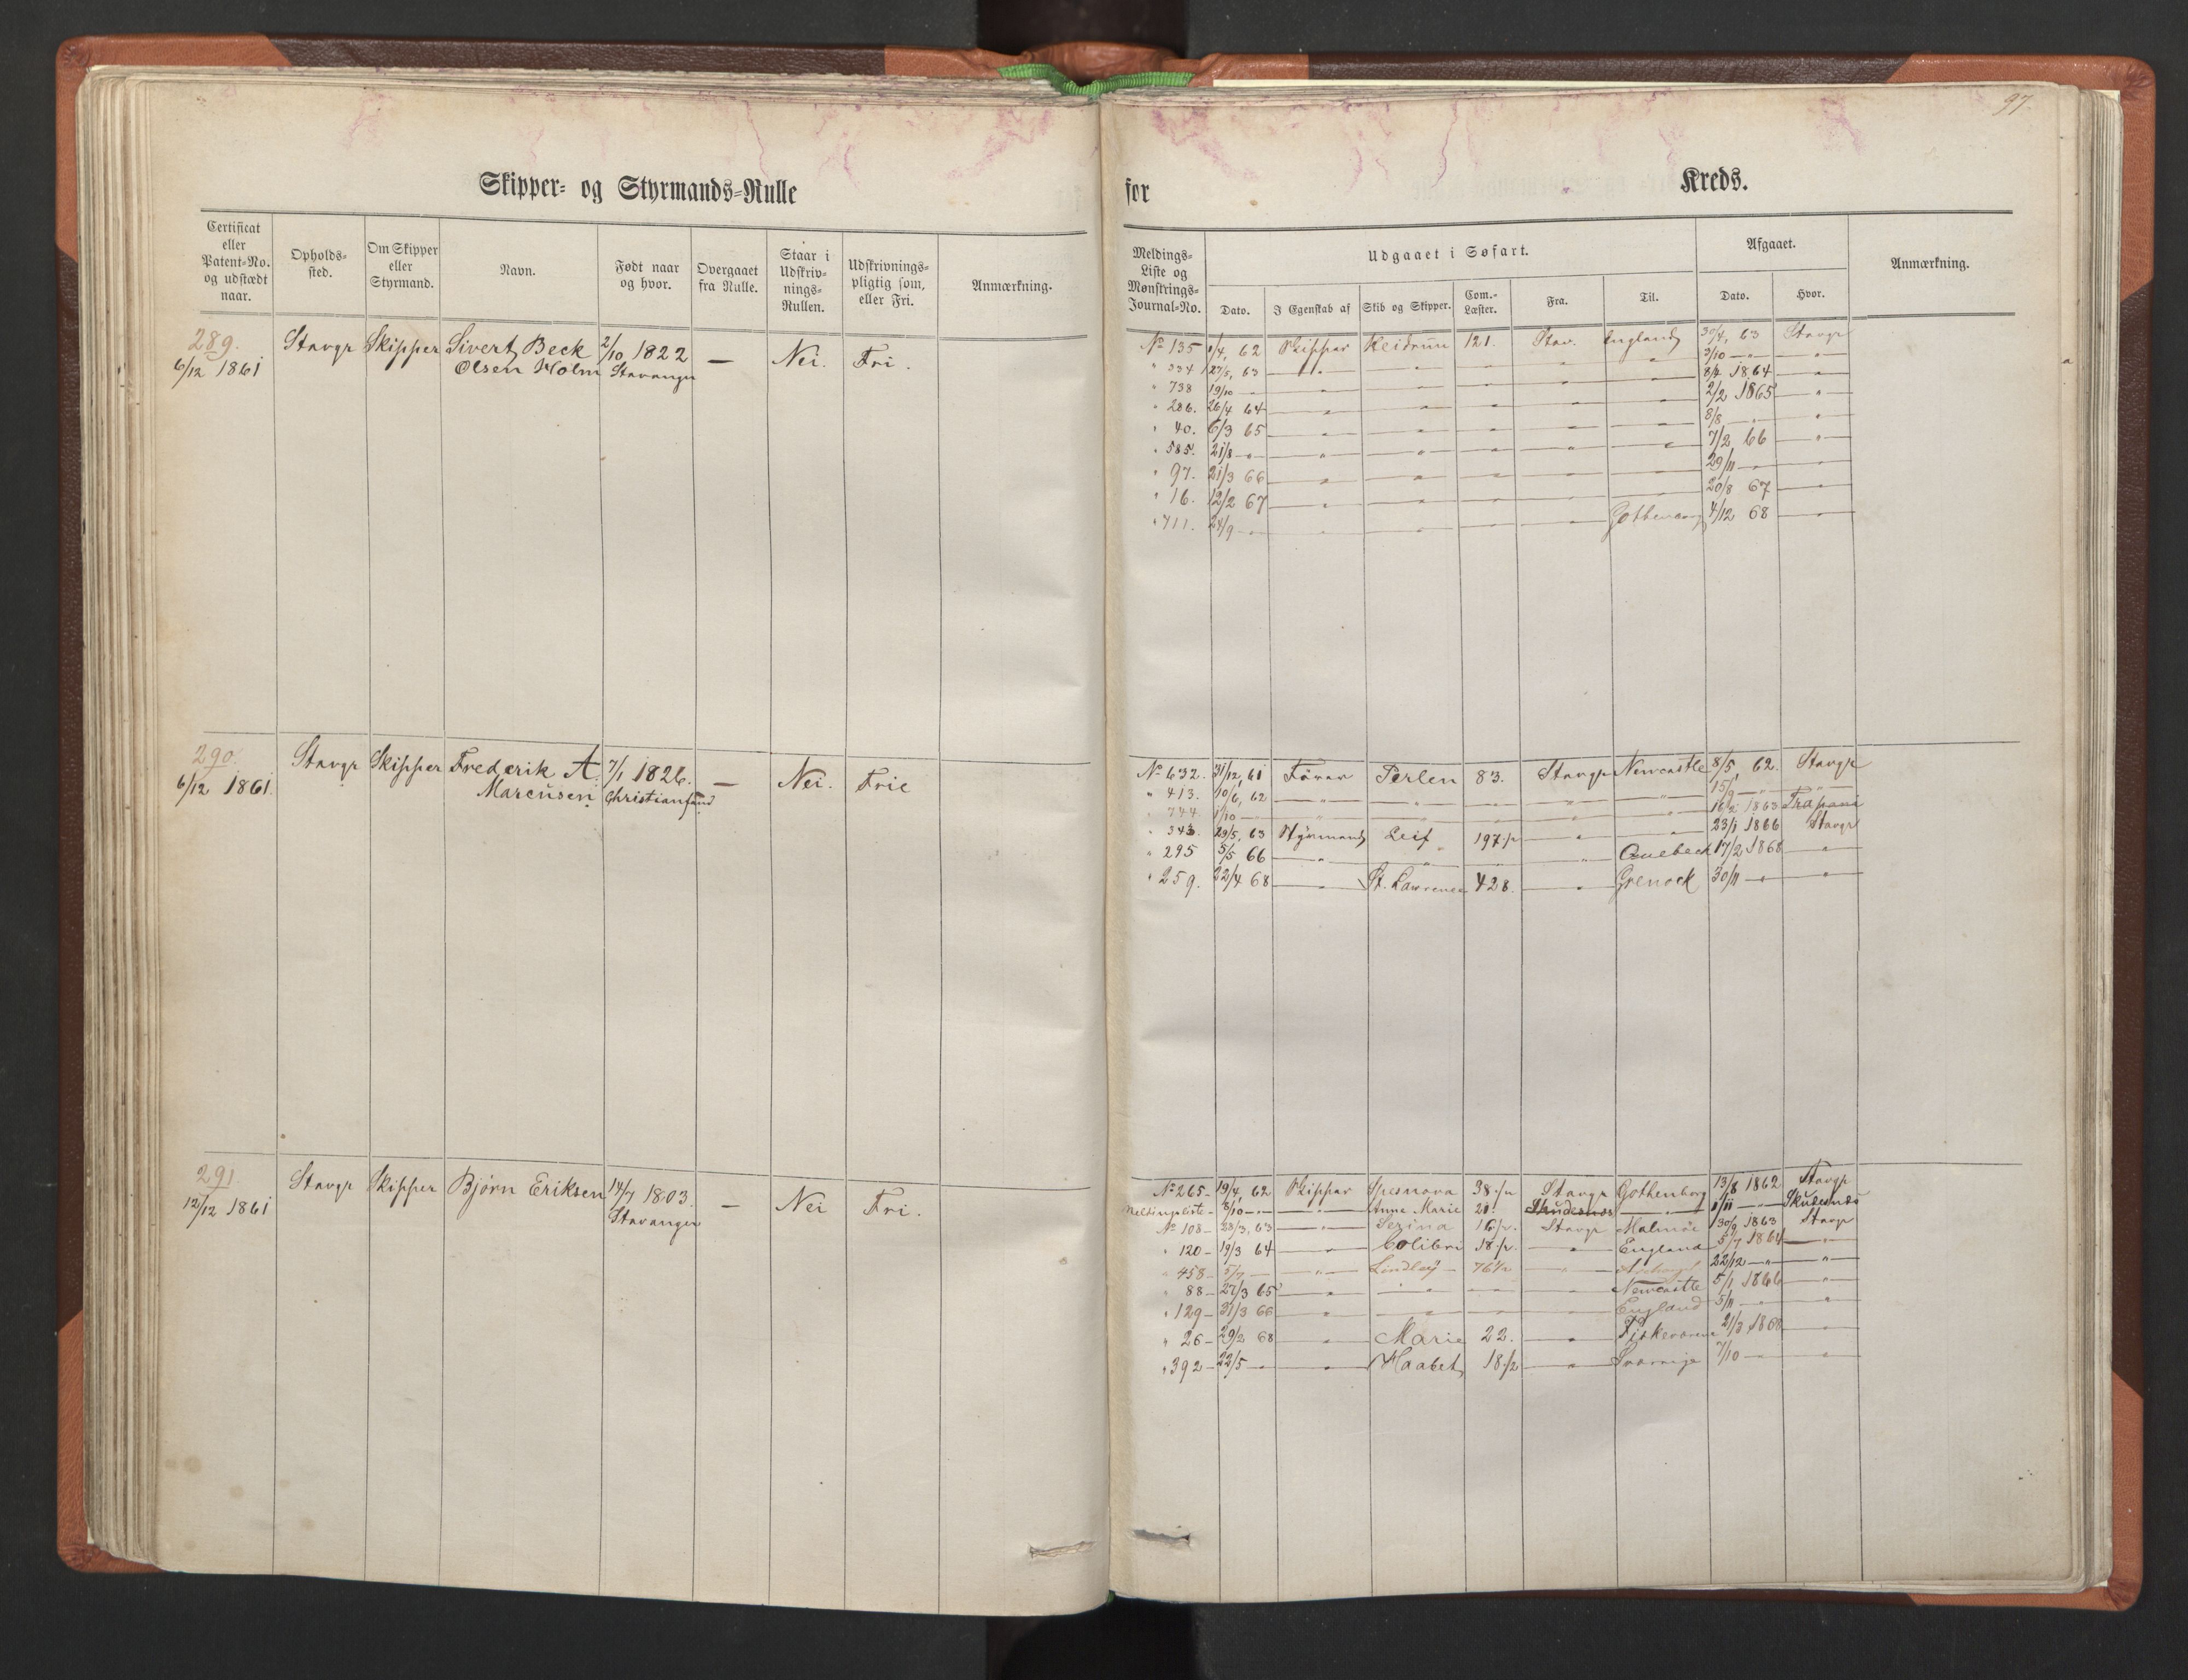 97.
Skipper- og Styrmands-Rulle
for Kreds.
Certificat eller Patent-No. og udstædt naar.
Opholds-sted.
Om Skipper eller Styrmand.
Navn.
Født naar og hvor.
Overgaaet fra Rulle.
Staar i Udskriv-nings-Rullen.
Udskrivnings-pligtig som, eller Fri.
Anmærkning.
Meldings-Liste og Mønstrings-Journal-No.
Udgaaet i Søfart.
Dato.
I Egenskab af
Skib og Skipper.
Com.-Læster.
Fra.
Til.
Afgaaet.
Dato.
Hvor.
Anmærkning.
289. Stavgr Skipper Sivert Beck 2/10 1822 — Nei. Fri.
6/12 1861 Olsen Holm Stavanger
No 135 1/4, 62 Skipper Heidrun 121. Stav. England 30/4, 63 Stavgr
" 334 27/5, 63 — " — " — " — " — " 3/10 — " — "
" 738 19/10 — " — " — " — " — " — " 8/2 1864 — "
" 286. 26/4 64 — " — " — " — " — " 2/2 1865 — "
" 40. 6/3 65 — " — " — " — " — " 8/8 — " — "
" 585. 21/8 — " — " — " — " — " — " 7/2 66 — "
" 97. 21/3 66 — " — " — " — " — " 29/11 — " — "
" 16. 12/2 67 — " — " — " — " — " 20/8 67 — "
" 711. 24/9 — " — " — " — " — " Gothenborg 4/12 68 — "
290. Stavgr Skipper Frederik A. 7/1 1826. — Nei. Frie
6/12 1861 Marcusen Christiansand
No 632. 31/12, 61 Fører Perlen 83. Stavgr Newcastle 8/5, 62. Stavgr
" 413. 10/6, 62 — " — " — " — " — " 15/9 — " — "
" 744 1/10 — " — " — " — " — " — " 16/2 1863 Trapani
" 343. 29/5, 63 Styrmand Leif 197 1/2 — " — " 23/1 1866 Stavgr
" 295 5/5 66 — " — " — " — " Quebeck 17/2 1868 — "
" 259. 22/4 68 — " St. Lawrence 428. — " Grenock 30/11 — " — "
291 Stavgr Skipper Bjørn Eriksen 14/7 1803. — Nei Fri.
12/12 1861 Stavanger
No 265 — 19/4, 62 Skipper Spesnova 38 1/2 Stavgr Gothenborg 13/8 1862 Stavgr
Meldingsliste — 8/10 — " — " Anne Marie 21. Skudesnes — " 1/11 — " Skudesnæs
No 108 — 23/3, 63 — " Sezina 16 1/2. Stavgr Malmöe 30/9 1863 Stavgr
" 120 — 19/3 64 — " Colibri 18 1/2. — " England 5/7 1864 — "
" 458 — 5/7 — " — " Lindløy — 76 1/2 — " 22/12 — " — "
" 88 — 27/3 65 — " — " — " — " Newcastle 5/1 1866 — "
" 129 — 31/3 66 — " — " — " — " England 5/11 — " — "
" 26 — 29/2 68 — " Marie 22. — " Fiskeværene 21/3 1868 — "
" 392 — 22/5 — " — " Haabet 18 1/2 — " Sverrige 7/10 — " — "